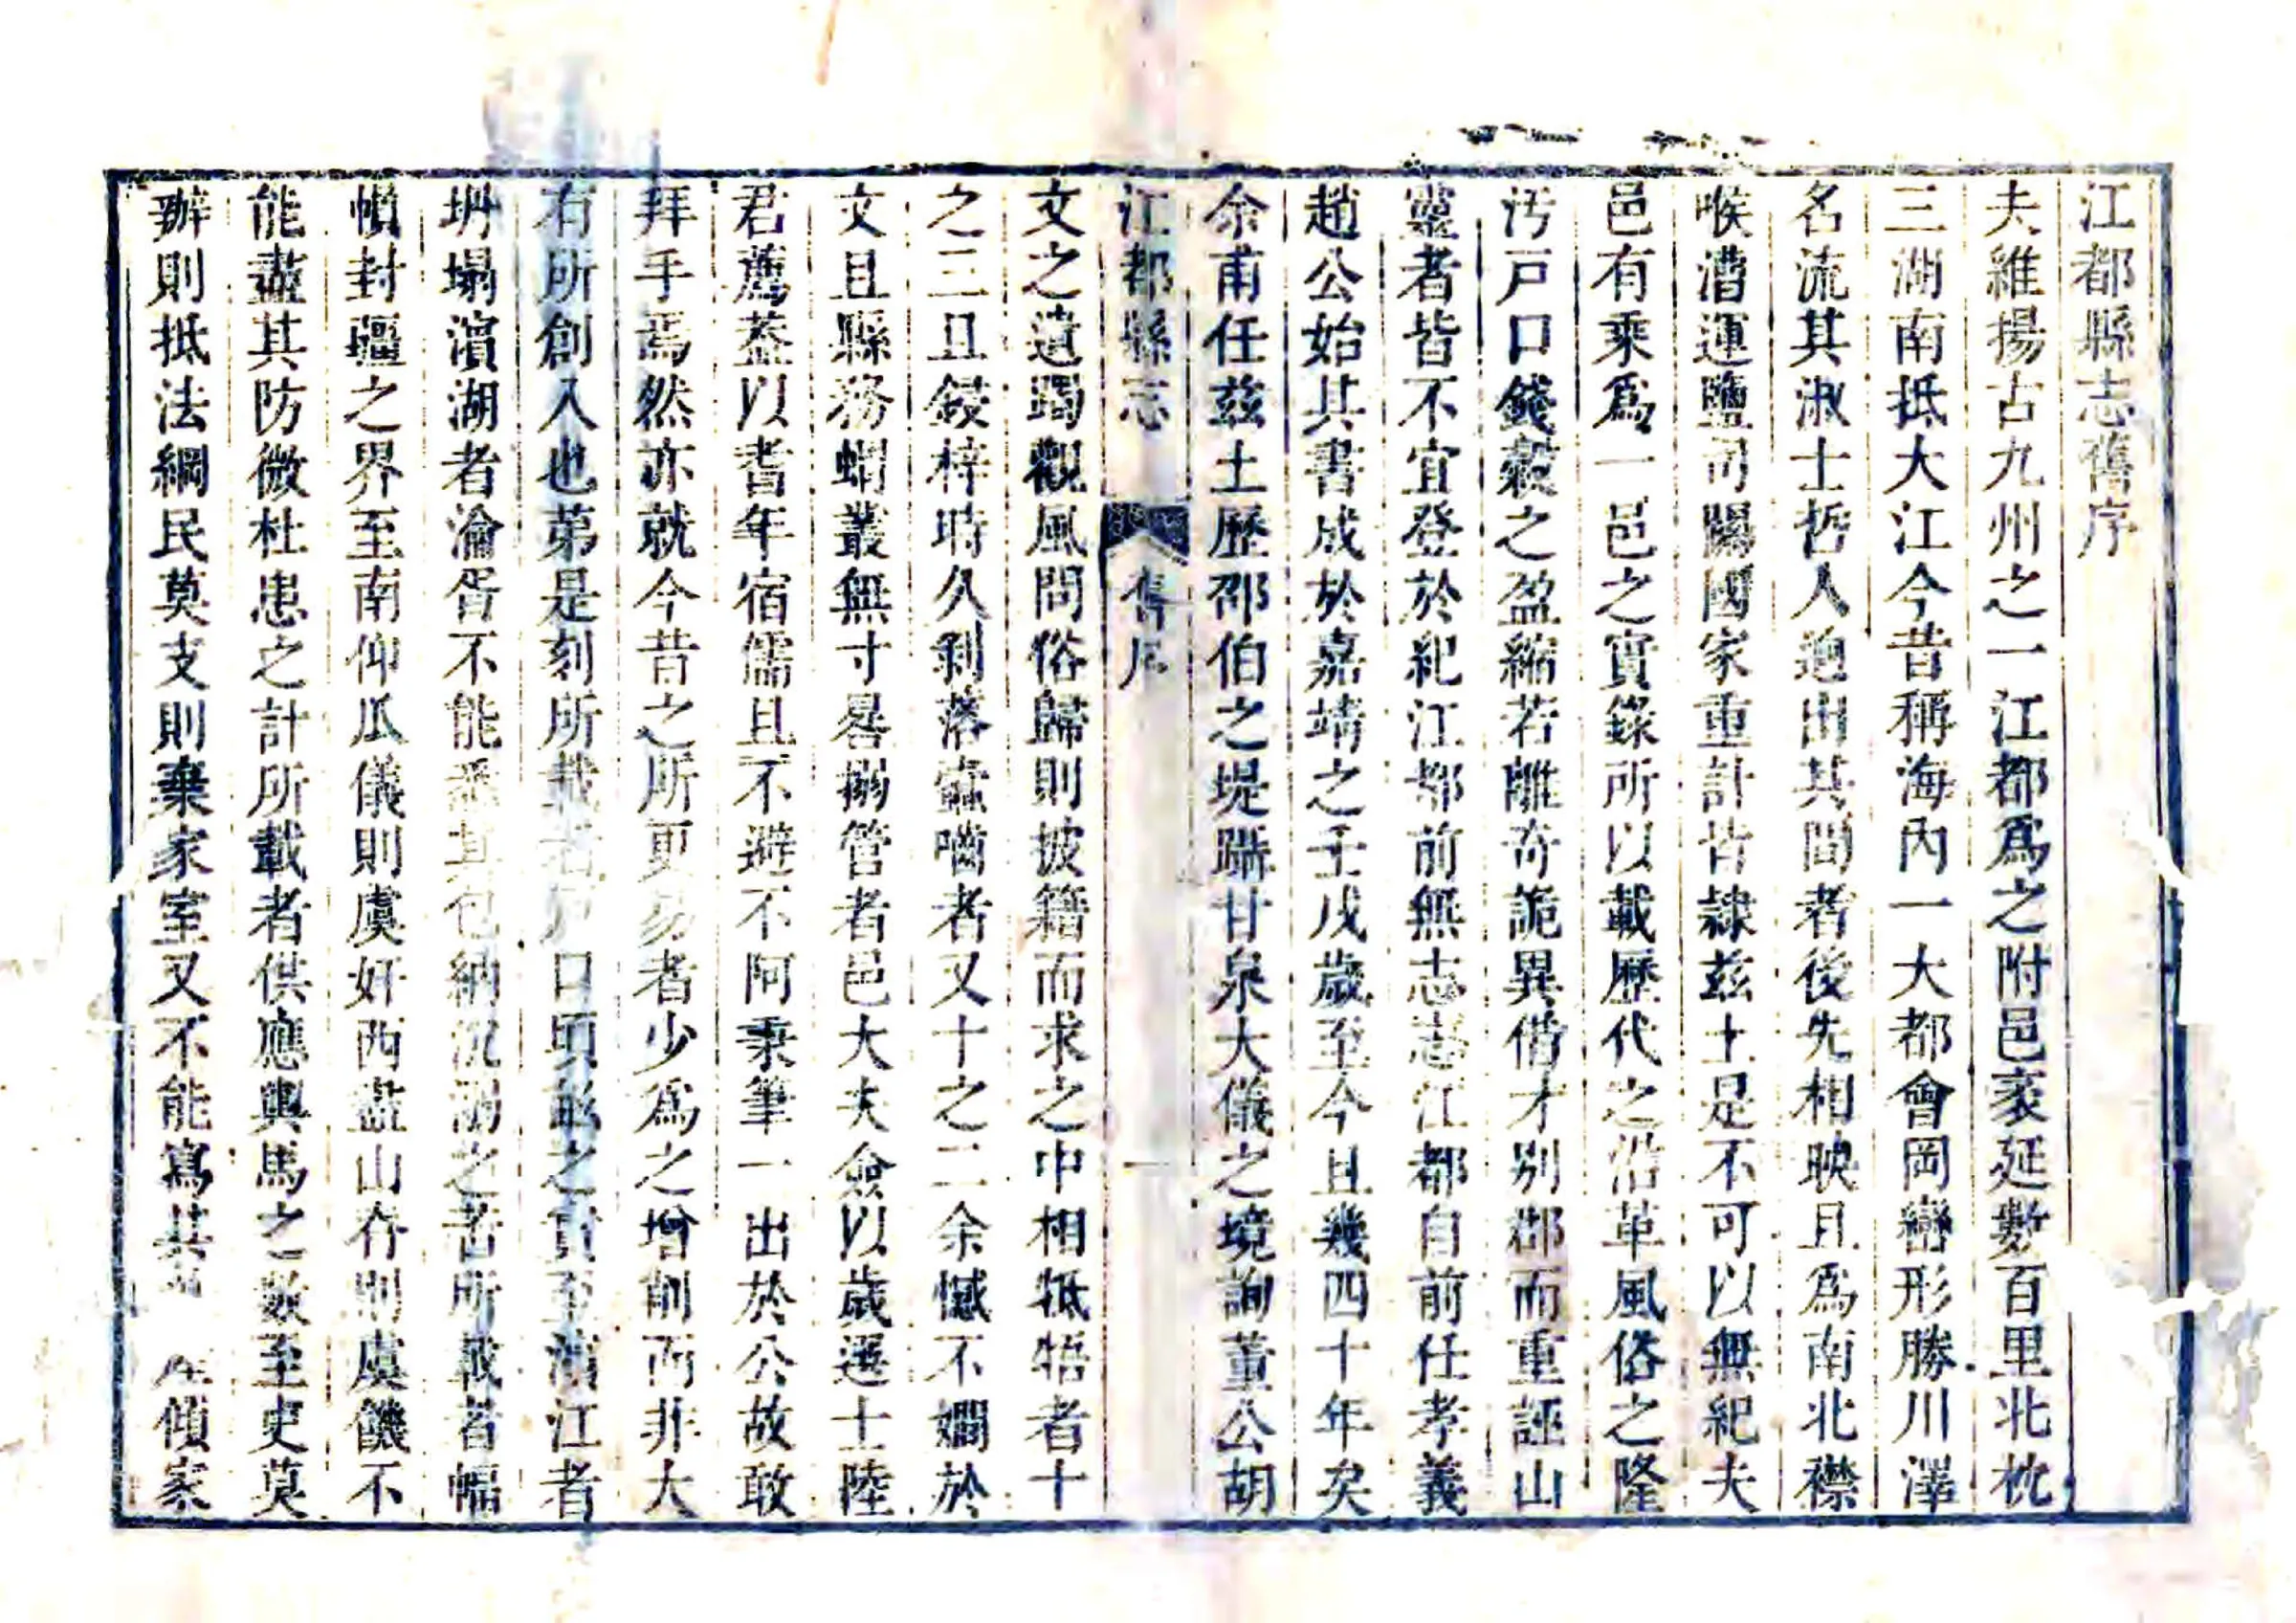 江都縣志舊序
夫維揚古九州之一江都爲之附邑袤延數百里北枕
三湖南抵大江今昔稱海內一大都會岡巒形勝川澤
名流其淑士哲人迥出其間者後先相映且爲南北襟
喉漕運鹽司關國家重計皆隷兹土是不可以無紀夫
邑有乘爲一邑之實錄所以載歷代之沿革風俗之隆
汚戸口錢穀之盈縮若離奇詭異借才别郡而重誣山
靈者皆不宜登於紀江都前無志志江都自前任孝義
趙公始其書成於嘉靖之壬戌歲至今且幾四十年矣
余甫任兹土歷邵伯之堤躡甘泉大儀之境詢董公胡
江都縣志 舊序 一
文之遺躅觀風問俗歸則披籍而求之中相牴牾者十
之三且鋟梓時久剥落蠹嚙者又十之二余憾不嫺於
文且縣務蝟叢無寸晷搦管者邑大夫僉以歲選士陸
君薦葢以耆年宿儒且不避不阿秉筆一出於公故敢
拜手焉然亦就今昔之所更易者少爲之增削而非大
有所創入也第是刻所載者戸口頃畝之貢至濱江者
坍塌濵湖者淪胥不能悉其包納沉溺之苦所載者幅
幀封疆之界至南仰瓜儀則虞奸西盡山谷則虞饑不
能盡其防微杜患之計所載者供應輿馬之數至吏莫
辦則抵法網民莫支則棄家室又不能寫其 傾家